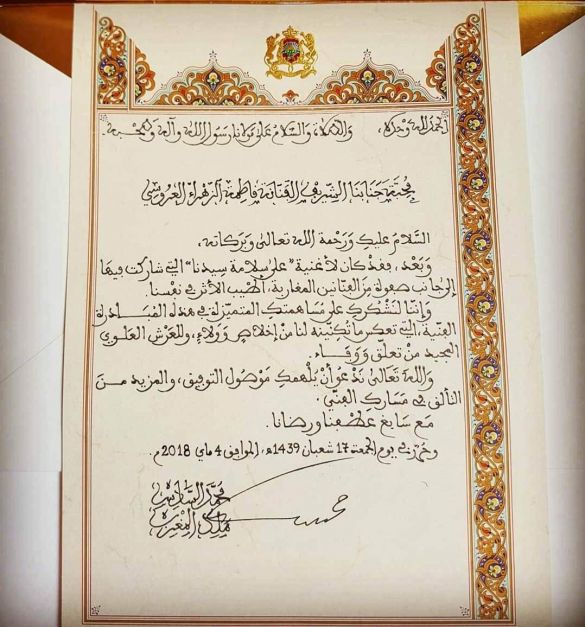 الحمد لله وحده، والصلاة والسلام على مولانا رسول الله وآله وصحبه
محبة جنابنا الشريف الفنانة فاطمة الزهراء العروسي
السلام عليك ورحمة الله تعالى وبركاته،
وبعد، فقد كان لأغنية "على سلامة سيدنا" التي شاركت فيها
إلى جانب صفوة من الفنانين المغاربة، أطيب الأثر في نفسنا.
وإننا لنشكرك على مساهمتك المتميزة في هذه المبادرة
الفنية، التي تعكس ما تكنينه لنا من إخلاص وولاء، وللعرش العلوي
المجيد من تعلق ووفاء.
والله تعالى ندعو أن يلهمك موصول التوفيق، والمزيد من
التألق في مسارك الفني.
مع سابغ عطفنا ورضانا.
وحرر في يوم الجمعة 17 شعبان 1439هـ، الموافق 4 ماي 2018م.
محمد السادس
ملك المغرب